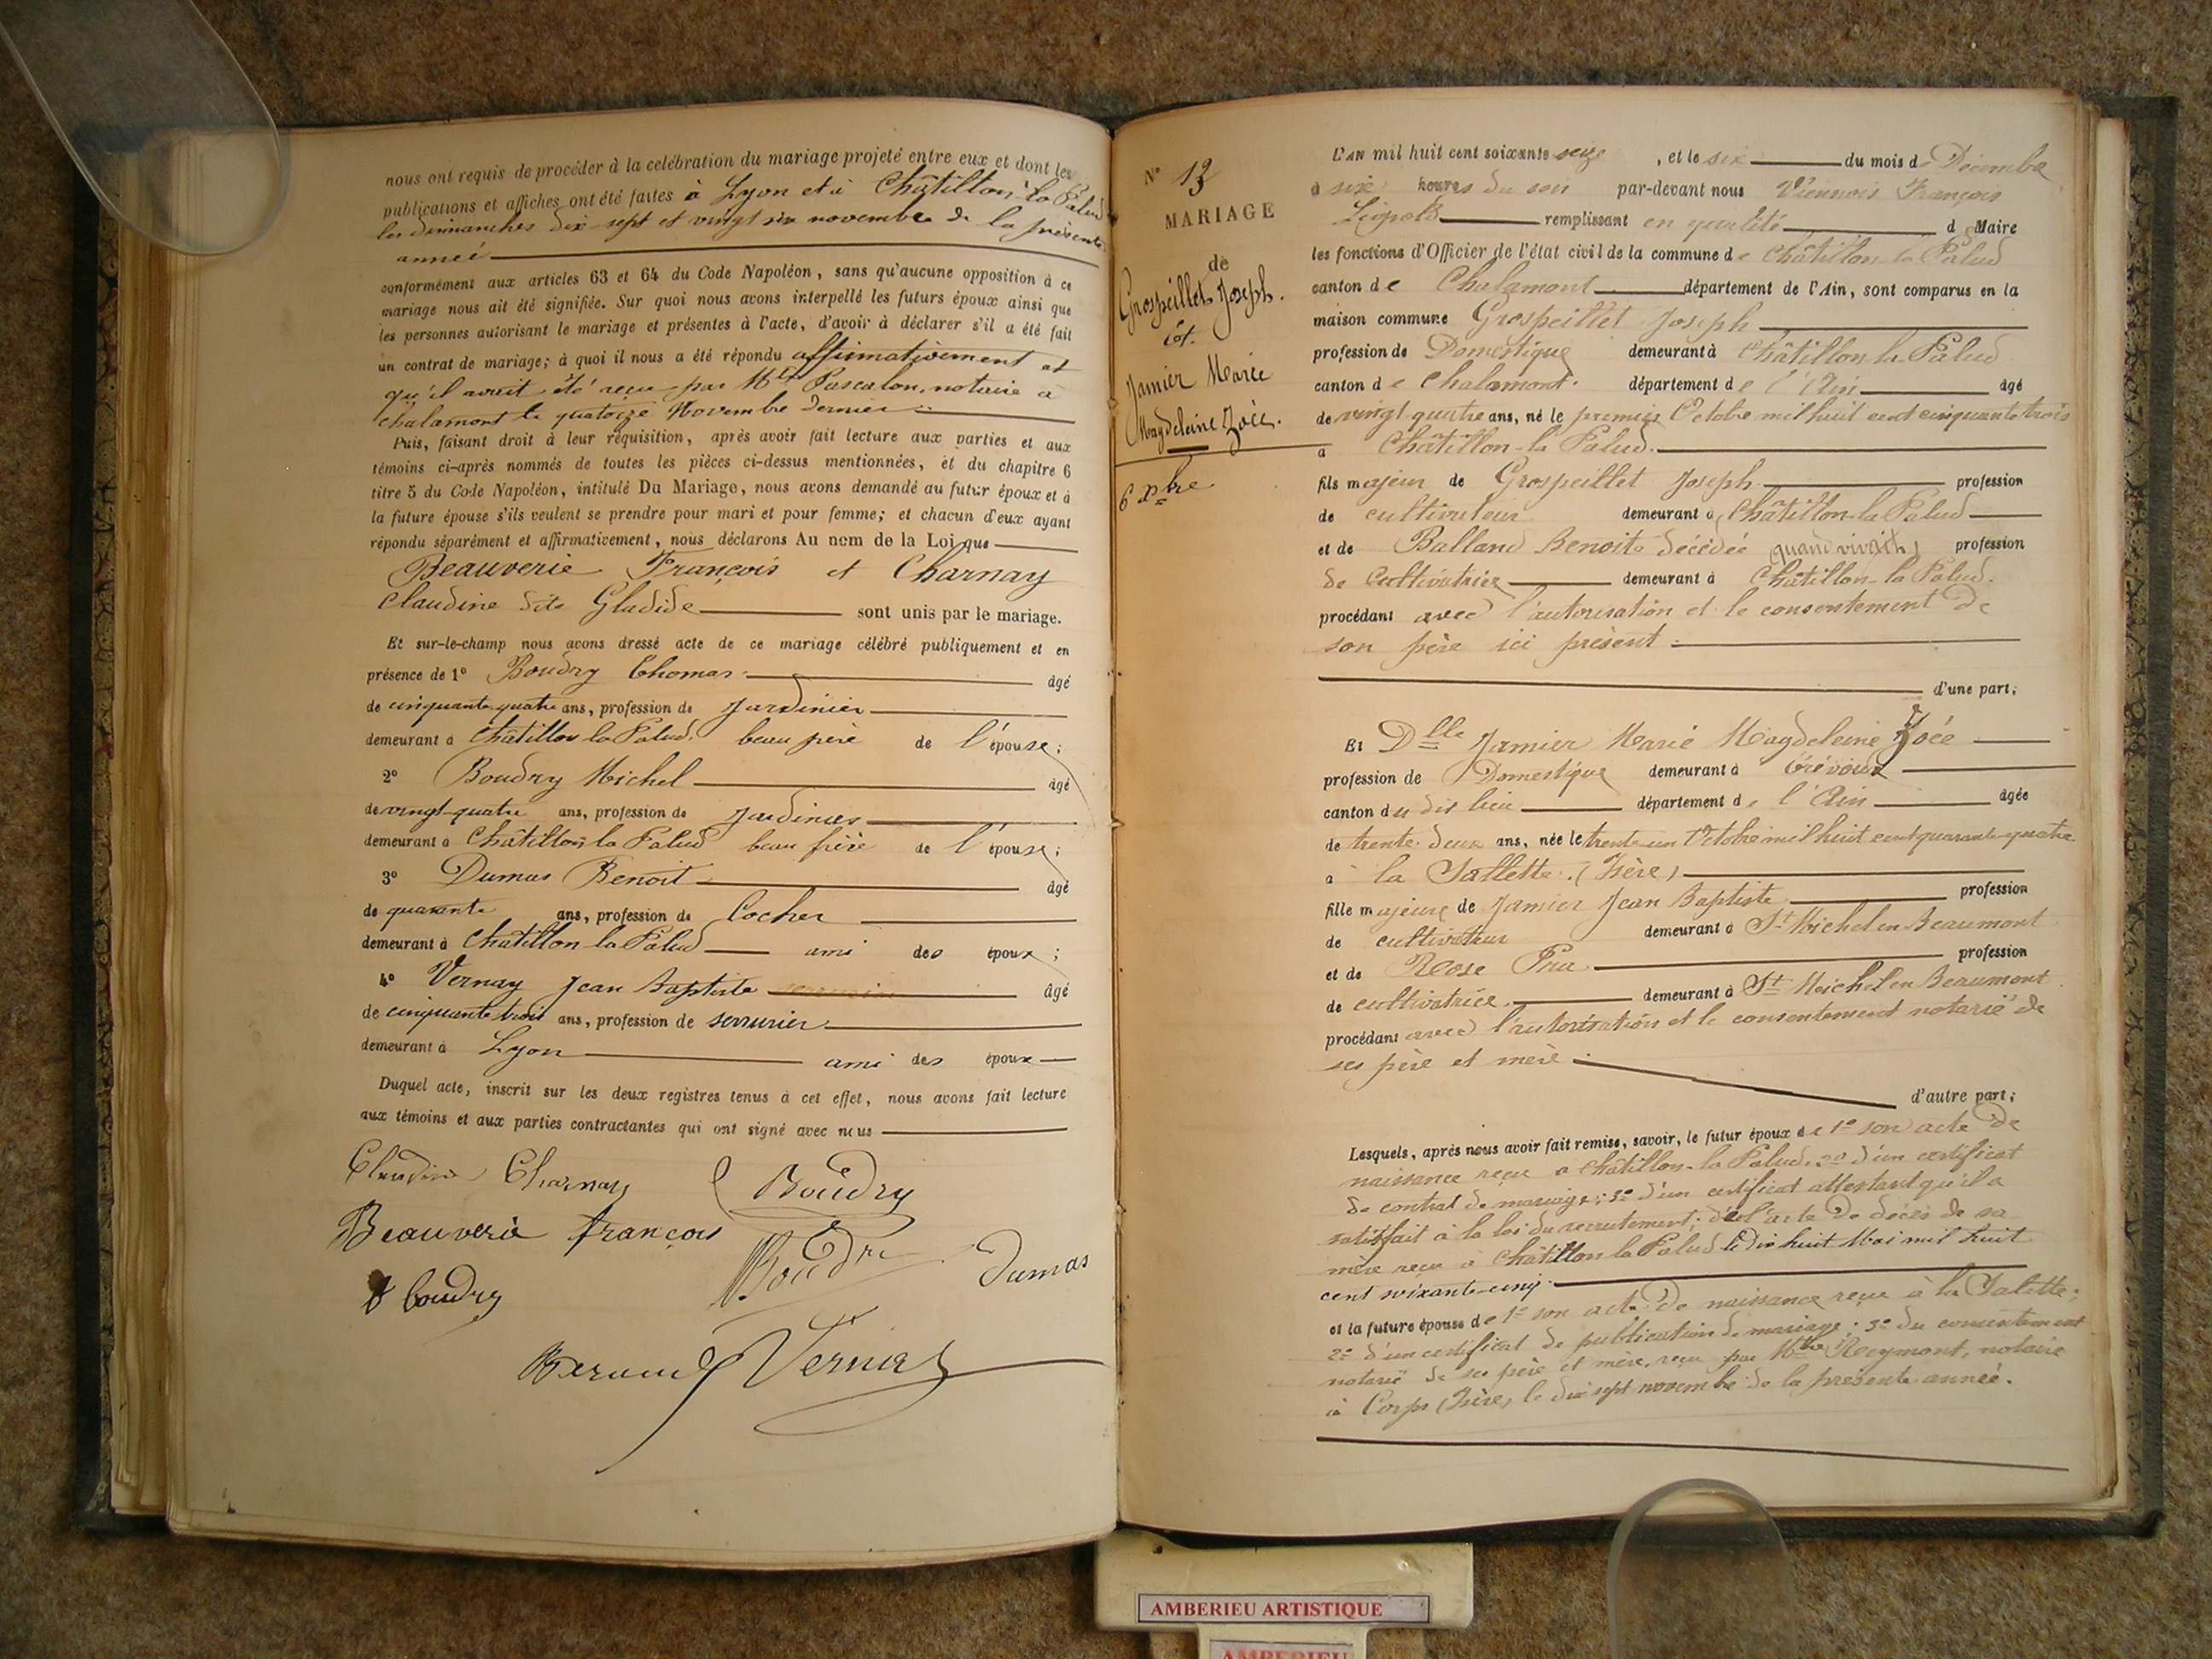 nous ont requis de procéder à la celébration du mariage projeté entre eux et dont les
publications et affiches ont été faites à Lyon et à Châtillon la Palud
les dimanches dix sept et vingt six novembre de la présente
année
conformément aux articles 63 et 64 du Code Napoléon, sans qu'aucune opposition à ce
mariage nous ait été signifiée. Sur quoi nous avons interpellé les futurs époux ainsi que
les personnes autorisant le mariage et présentes à l'acte, d'avoir à déclarer s'il a été fait
un contrat de mariage; à quoi il nous a été répondu affirmativement et
qu'il avait été reçu par Me Pascalon, notaire à
Chalamont le quatorze Novembre dernier
Puis, faisant droit à leur réquisition, après avoir fait lecture aux parties et aux
témoins ci-après nommés de toutes les pièces ci-dessus mentionnées, et du chapitre 6
titre 5 du Code Napoléon, intitulé Du Mariage, nous avons demandé au futur époux et à
la future épouse s'ils veulent se prendre pour mari et pour femme; et chacun d'eux ayant
répondu séparément et affirmativement, nous déclarons Au nom de la Loi que
Beauverie François et Charnay
Claudine dite Gladide sont unis par le mariage.
Et sur-le-champ nous avons dressé acte de ce mariage célébré publiquement et en
présence de 1º Boudry Thomas âgé
de cinquante quatre ans, profession de Jardinier
demeurant à Châtillon la Palud, beau père de l'épouse;
2º Boudry Michel âgé
de vingt-quatre ans, profession de Jardinier
demeurant à Châtillon la Palud beau frère de l'épouse;
3º Dumas Benoit âgé
de quarante ans, profession de Cocher
demeurant à Châtillon la Palud ami des époux;
4º Vernay Jean Baptiste âgé
de cinquante trois ans, profession de serrurier
demeurant à Lyon ami des époux
Duquel acte, inscrit sur les deux registres tenus à cet effet, nous avons fait lecture
aux témoins et aux parties contractantes qui ont signé avec nous
Claudine Charnay Boudry
Beauverie françois
Boudry Dumas
Vernay
Nº 13
MARIAGE
de
Grospeillet Joseph.
et.
Jamier Marie
Magdeleine Zoée.
6 Xbre
L'AN mil huit cent soixante seize, et le six du mois de Décembre
à six heures du soir par-devant nous Viennois François
Léopold remplissant en qualité d Maire
les fonctions d'Officier de l'état civil de la commune de Châtillon la Palud
canton de Chalamont département de l'Ain, sont comparus en la
maison commune Grospeillet Joseph
profession de Domestique demeurant à Châtillon la Palud
canton de Chalamont. département de l'Ain âgé
de vingt quatre ans, né le premier Octobre mil huit cent cinquante trois
à Châtillon-la Palud.
fils majeur de Grospeillet Joseph profession
de cultivateur demeurant à Châtillon-la Palud
et de Balland Benoite décédée quand vivait profession
de Cultivatrice demeurant à Châtillon-la Palud.
procédant avec l'autorisation et le consentement de
son père ici présent
d'une part;
Et Dlle Jamier Marie Magdeleine Zoée
profession de Domestique demeurant à Trévoux
canton du dit lieu département de l'Ain âgée
de trente deux ans, née le trente un Octobre mil huit cent quarante quatre
à la Sallette. (Isère)
fille majeure de Jamier Jean Baptiste profession
de cultivateur demeurant à St Michel en Beaumont
et de Rose Pra profession
de cultivatrice demeurant à St Michel en Beaumont
procédant avec l'autorisation et le consentement notarié de
ses père et mère
d'autre part;
Lesquels, après nous avoir fait remise, savoir, le futur époux de 1º son acte de
naissance reçu à Châtillon-la Palud. 2º d'un certificat
de contrat de mariage; 3º d'un certificat attestant qu'il a
satisfait à la loi du recrutement; de l'acte de décès de sa
mère reçu à Châtillon la Palud le dix huit Mai mil huit
cent soixante-cinq
et la future épouse de 1º son acte de naissance reçu à la Salette;
2º d'un certificat de publication de mariage; 3º du consentement
notarié de ses père et mère, reçu par Mtre Reymont, notaire
à Corps (Isère), le dix sept novembre de la présente année.
AMBERIEU ARTISTIQUE
AMBERIEU